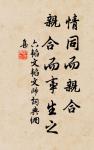 情同而親合
親合而事生之
六韜文韜文師詞典網
集